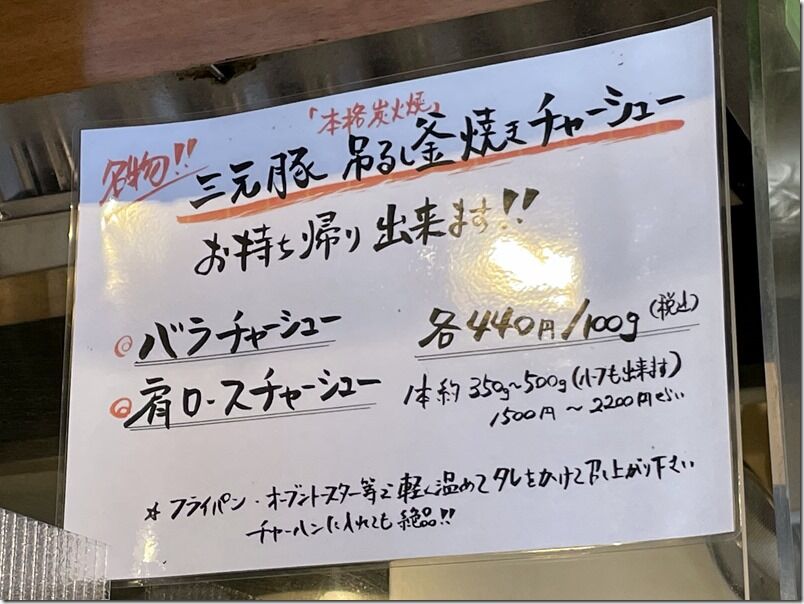 「本格炭火焼」
名物!!
三元豚 吊るし釜焼きチャーシュー
お持ち帰り出来ます!!
◎バラチャーシュー 各440円/100g(税込)
◎肩ロースチャーシュー 1本約350g~500g(ハーフも出来ます)
1500円~2200円ぐらい
*フライパン・オーブントースター等で軽く温めてタレをかけて召し上がり下さい
チャーハンに入れても絶品!!